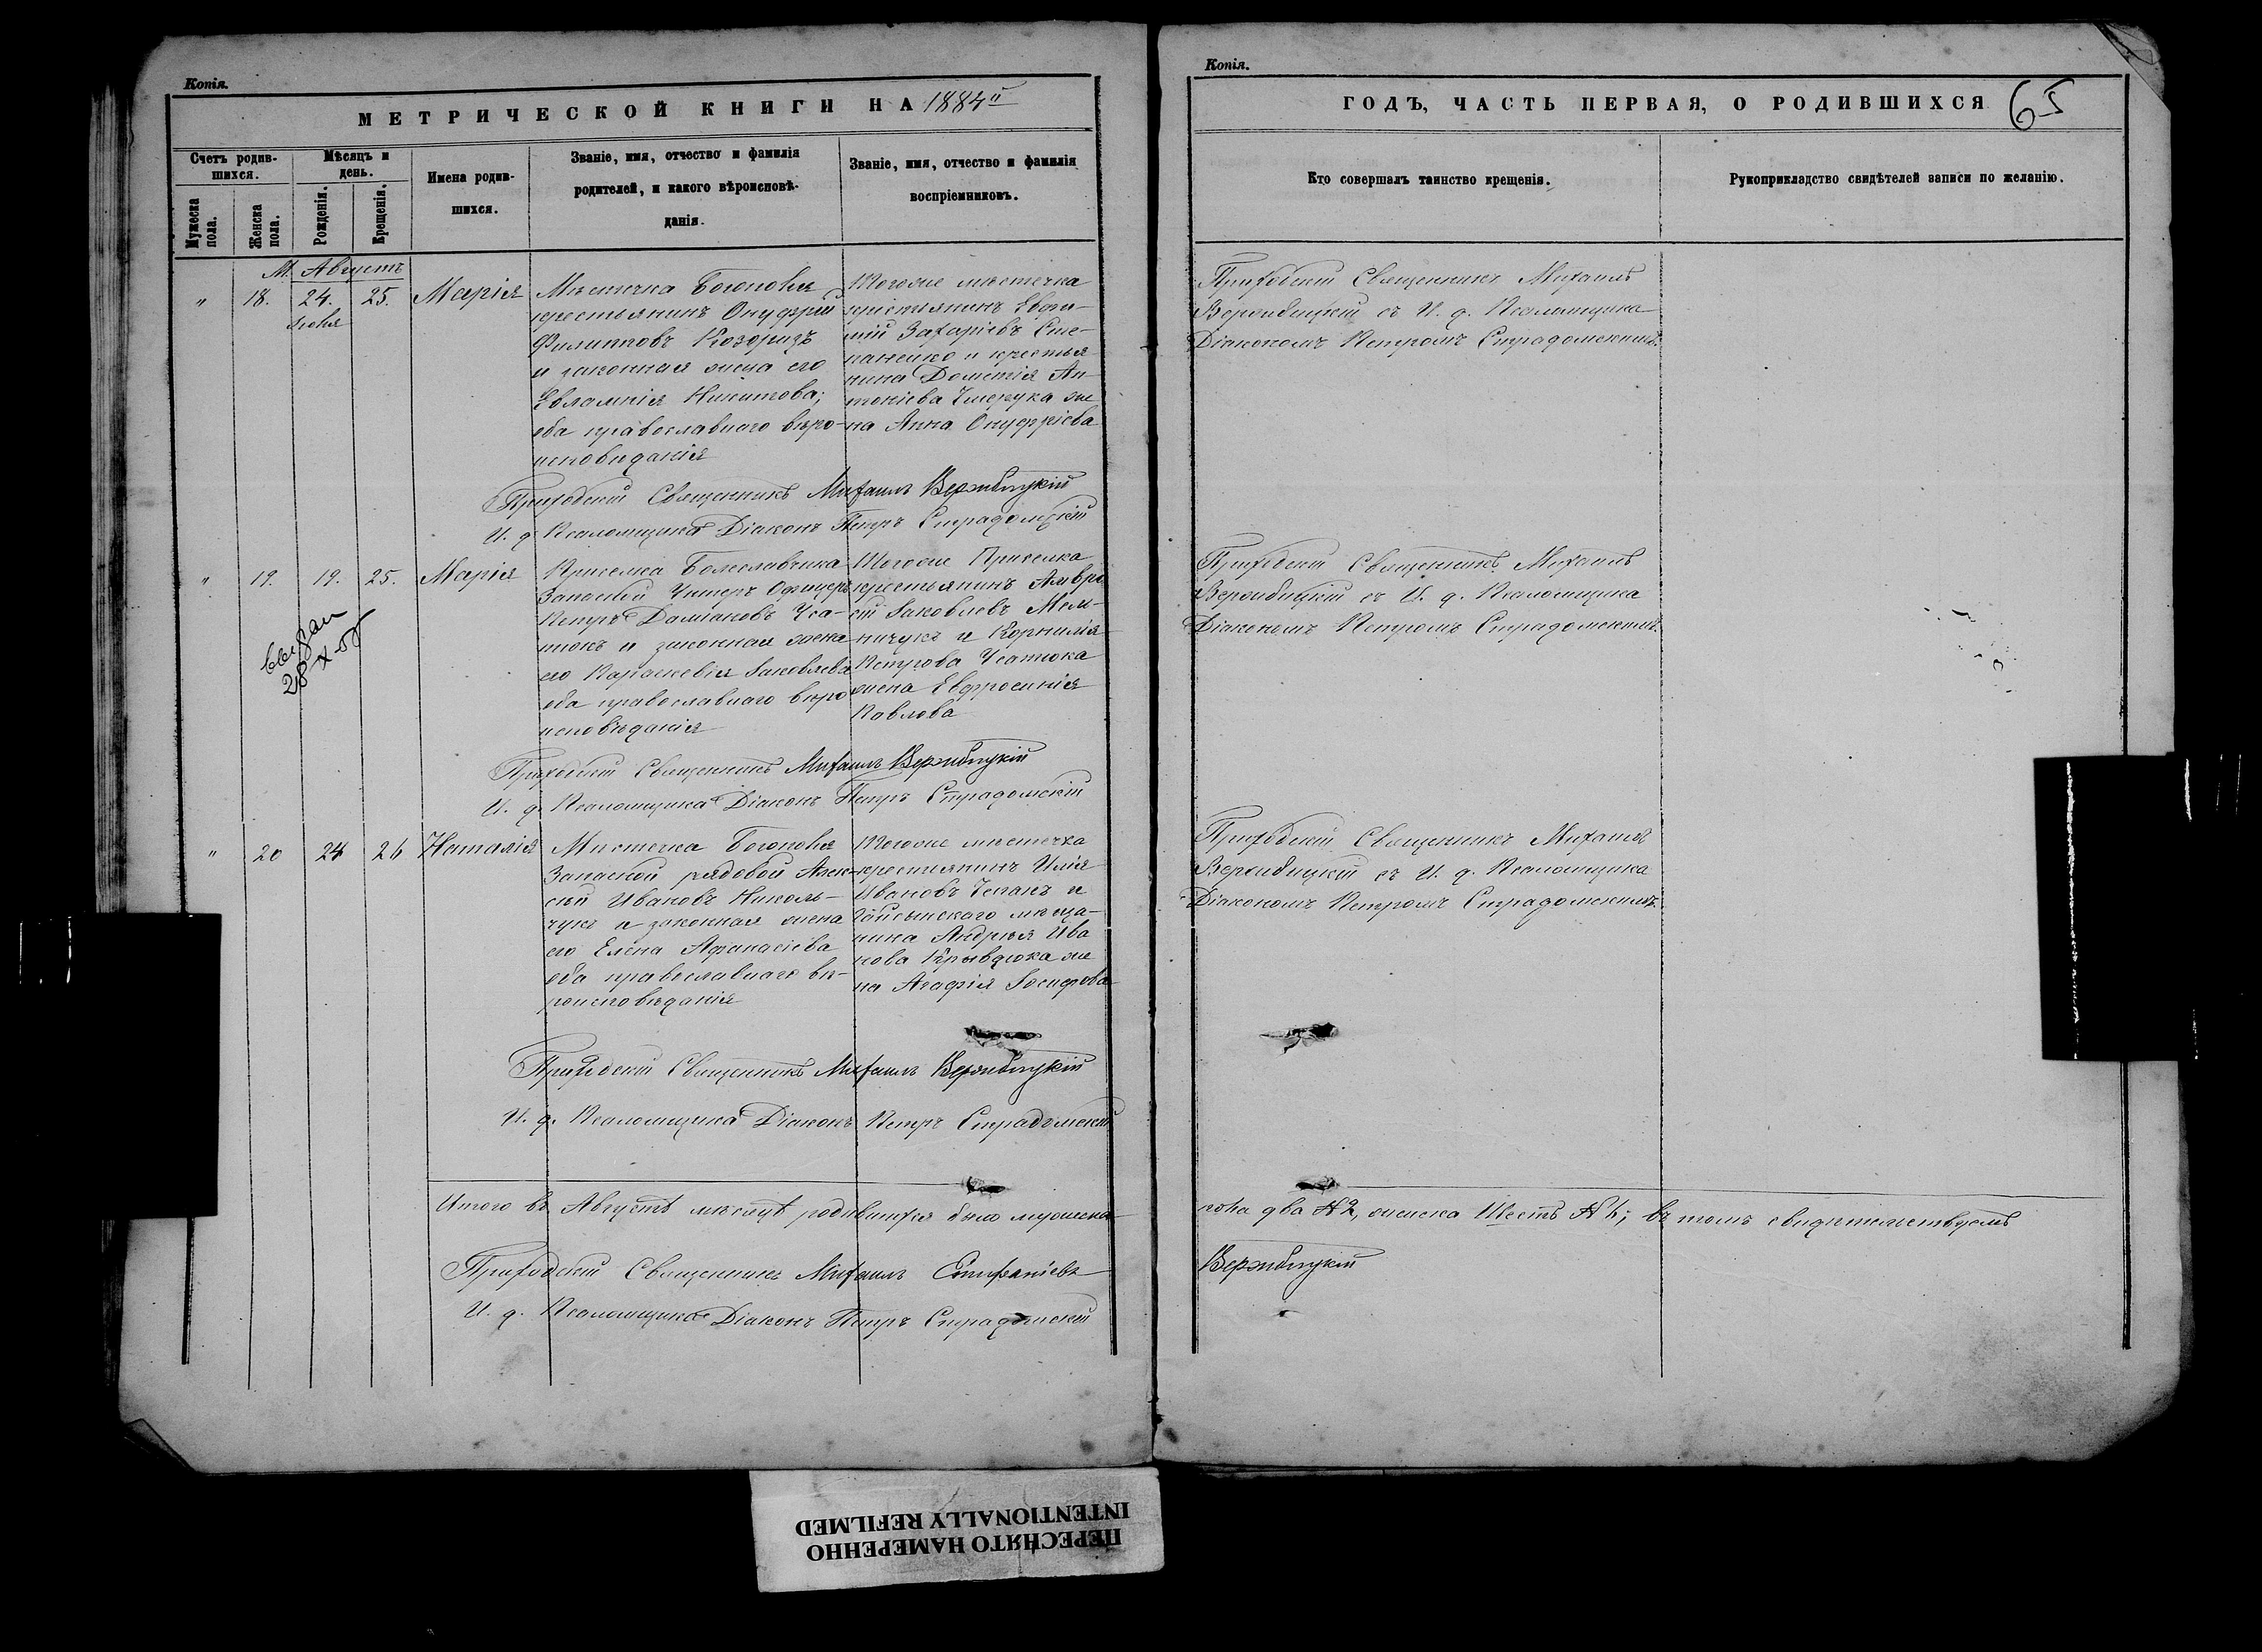 Копія.
МЕТРИЧЕСКОЙ КНИГИ НА 1884й
Счетъ родив-
шихся.
Мѣсяцъ и
день.
Имена родив-
шихся.
Званіе, имя, отчество и фамилія
родителей, и какого вѣроисповѣ-
данія.
Званіе, имя, отчество и фамилія
воспріемниковъ.
Мужеска
пола.
Женска
пола.
Рожденія.
Крещенія.
М. Августъ
" 18. 24. 25. Марія
Мѣстечка Богополя
крестьянинъ Онуфрій
Филипповъ Козоризъ
и законная жена его
Евлампія Никитова;
оба православнаго вѣро-
исповѣданія
Тогоже мѣстечка
крестьянинъ Евфи-
мій Захаріевъ Сте-
паненко и крестья-
нина Дометія Ан-
тоніева Чмерука же
на Анна Онуфріева
Приходскій Священникъ Михаилъ Вержбицкій
И. д. Псаломщика Діаконъ Петръ Страдомскій
" 19. 19. 25. Марія
Приселка Болеславчика
Запасный Унтеръ Офицеръ
Петръ Даміановъ Уса-
тюкъ и законная жена
его Параскевія Іаковлева
оба православнаго вѣро
исповѣданія
Тогоже Приселка
крестьянинъ Амвро
сій Іаковлевъ Мель-
ничукъ и Корнилія
Петрова Усатюка
жена Евфросинія
Павлова
28 X
Приходскій Священникъ Михаилъ Вержбицкій
И. д. Псаломщика Діаконъ Петръ Страдомскій
" 20 24 26 Наталія
Мѣстечка Богополя
Запасной рядовой Алек-
сѣй Ивановъ Николь-
чукъ и законная жена
его Елена Афанасіева
оба православнаго вѣ-
роисповѣданія
Тогоже мѣстечка
крестьянинъ Илія
Ивановъ и
Гайсынскаго мѣща-
нина Андрея Ива
нова же
на Агафія Іосифова
Приходскій Священникъ Михаилъ Вержбицкій
И. д. Псаломщика Діаконъ Петръ Страдомскій
Итого въ Августѣ мѣсяцѣ родившихся было мужеска
Приходскій Священникъ Михаилъ Епифаніевъ
И. д. Псаломщика Діаконъ Петръ Страдомскій
Копія.
ГОДЪ, ЧАСТЬ ПЕРВАЯ, О РОДИВШИХСЯ
65
Кто совершалъ таинство крещенія.
Рукоприкладство свидѣтелей записи по желанію.
Приходскій Священникъ Михаилъ
Вержбицкій съ И. д. Псаломщика
Діакономъ Петромъ Страдомскимъ.
Приходскій Священникъ Михаилъ
Вержбицкій съ И. д. Псаломщика
Діакономъ Петромъ Страдомскимъ.
Приходскій Священникъ Михаилъ
Вержбицкій съ И. д. Псаломщика
Діакономъ Петромъ Страдомскимъ.
пола два № 2, женска Шесть № 6; въ томъ свидѣтельствуемъ
Вержбицкій
ПЕРЕСНЯТО НАМЕРЕННО
INTENTIONALLY REFILMED